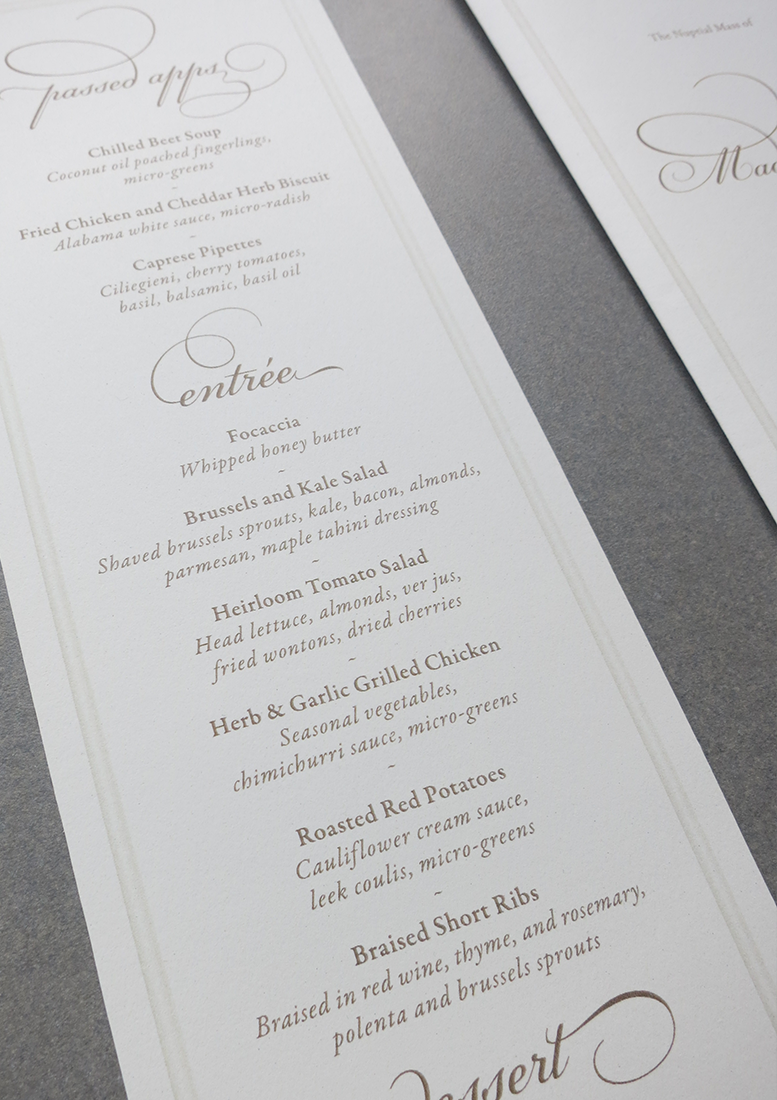 passed apps
Chilled Beet Soup
Coconut oil poached fingerlings,
micro-greens
~
Fried Chicken and Cheddar Herb Biscuit
Alabama white sauce, micro-radish
~
Caprese Pipettes
Ciliegieni, cherry tomatoes,
basil, balsamic, basil oil
entrée
Focaccia
Whipped honey butter
~
Brussels and Kale Salad
Shaved brussels sprouts, kale, bacon, almonds,
parmesan, maple tahini dressing
~
Heirloom Tomato Salad
Head lettuce, almonds, ver jus,
fried wontons, dried cherries
~
Herb & Garlic Grilled Chicken
Seasonal vegetables,
chimichurri sauce, micro-greens
~
Roasted Red Potatoes
Cauliflower cream sauce,
leek coulis, micro-greens
~
Braised Short Ribs
Braised in red wine, thyme, and rosemary,
polenta and brussels sprouts
dessert
The Nuptial Mass of